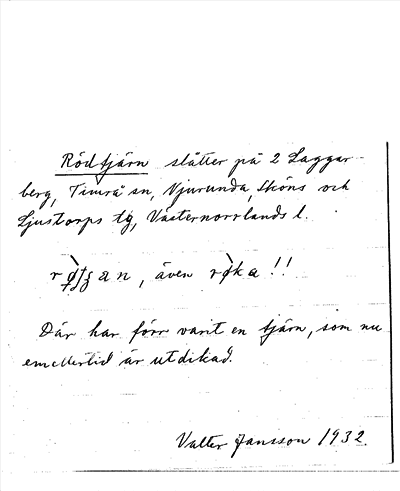 Rödtjärn slåtter på 2 Laggar-
berg, Timrå sn, Njurunda, Sköns och
Ljustorps tg, Västernorrlands l.
även røka!!
Där har förr varit en tjärn, som nu
emellertid är utdikad.
Valter Jansson 1932.